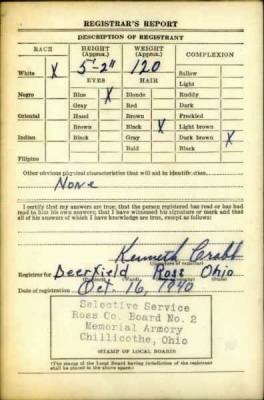 REGISTRAR'S REPORT
DESCRIPTION OF REGISTRANT
RACE HEIGHT (Approx.) WEIGHT (Approx.) COMPLEXION
5'-2" 120 Sallow
White X EYES HAIR Light
Negro Blue X Blonde Ruddy
Gray Red Dark
Oriental Hazel Brown Freckled
Brown Black X Light brown
Indian Black Gray Dark brown X
Bald Black
Filipino
Other obvious physical characteristics that will aid in identification
None
I certify that my answers are true; that the person registered has read or has had read to him his own answers; that I have witnessed his signature or mark and that all of his answers of which I have knowledge are true, except as follows:
Kenneth Crabb
(Signature of registrar)
Registrar for Deerfield Ross Ohio
Date of registration Oct. 16, 1940
Selective Service
Ross Co. Board No. 2
Memorial Armory
Chillicothe, Ohio
STAMP OF LOCAL BOARD
(The stamp of the Local Board having jurisdiction of the registrant shall be placed in the above space.)